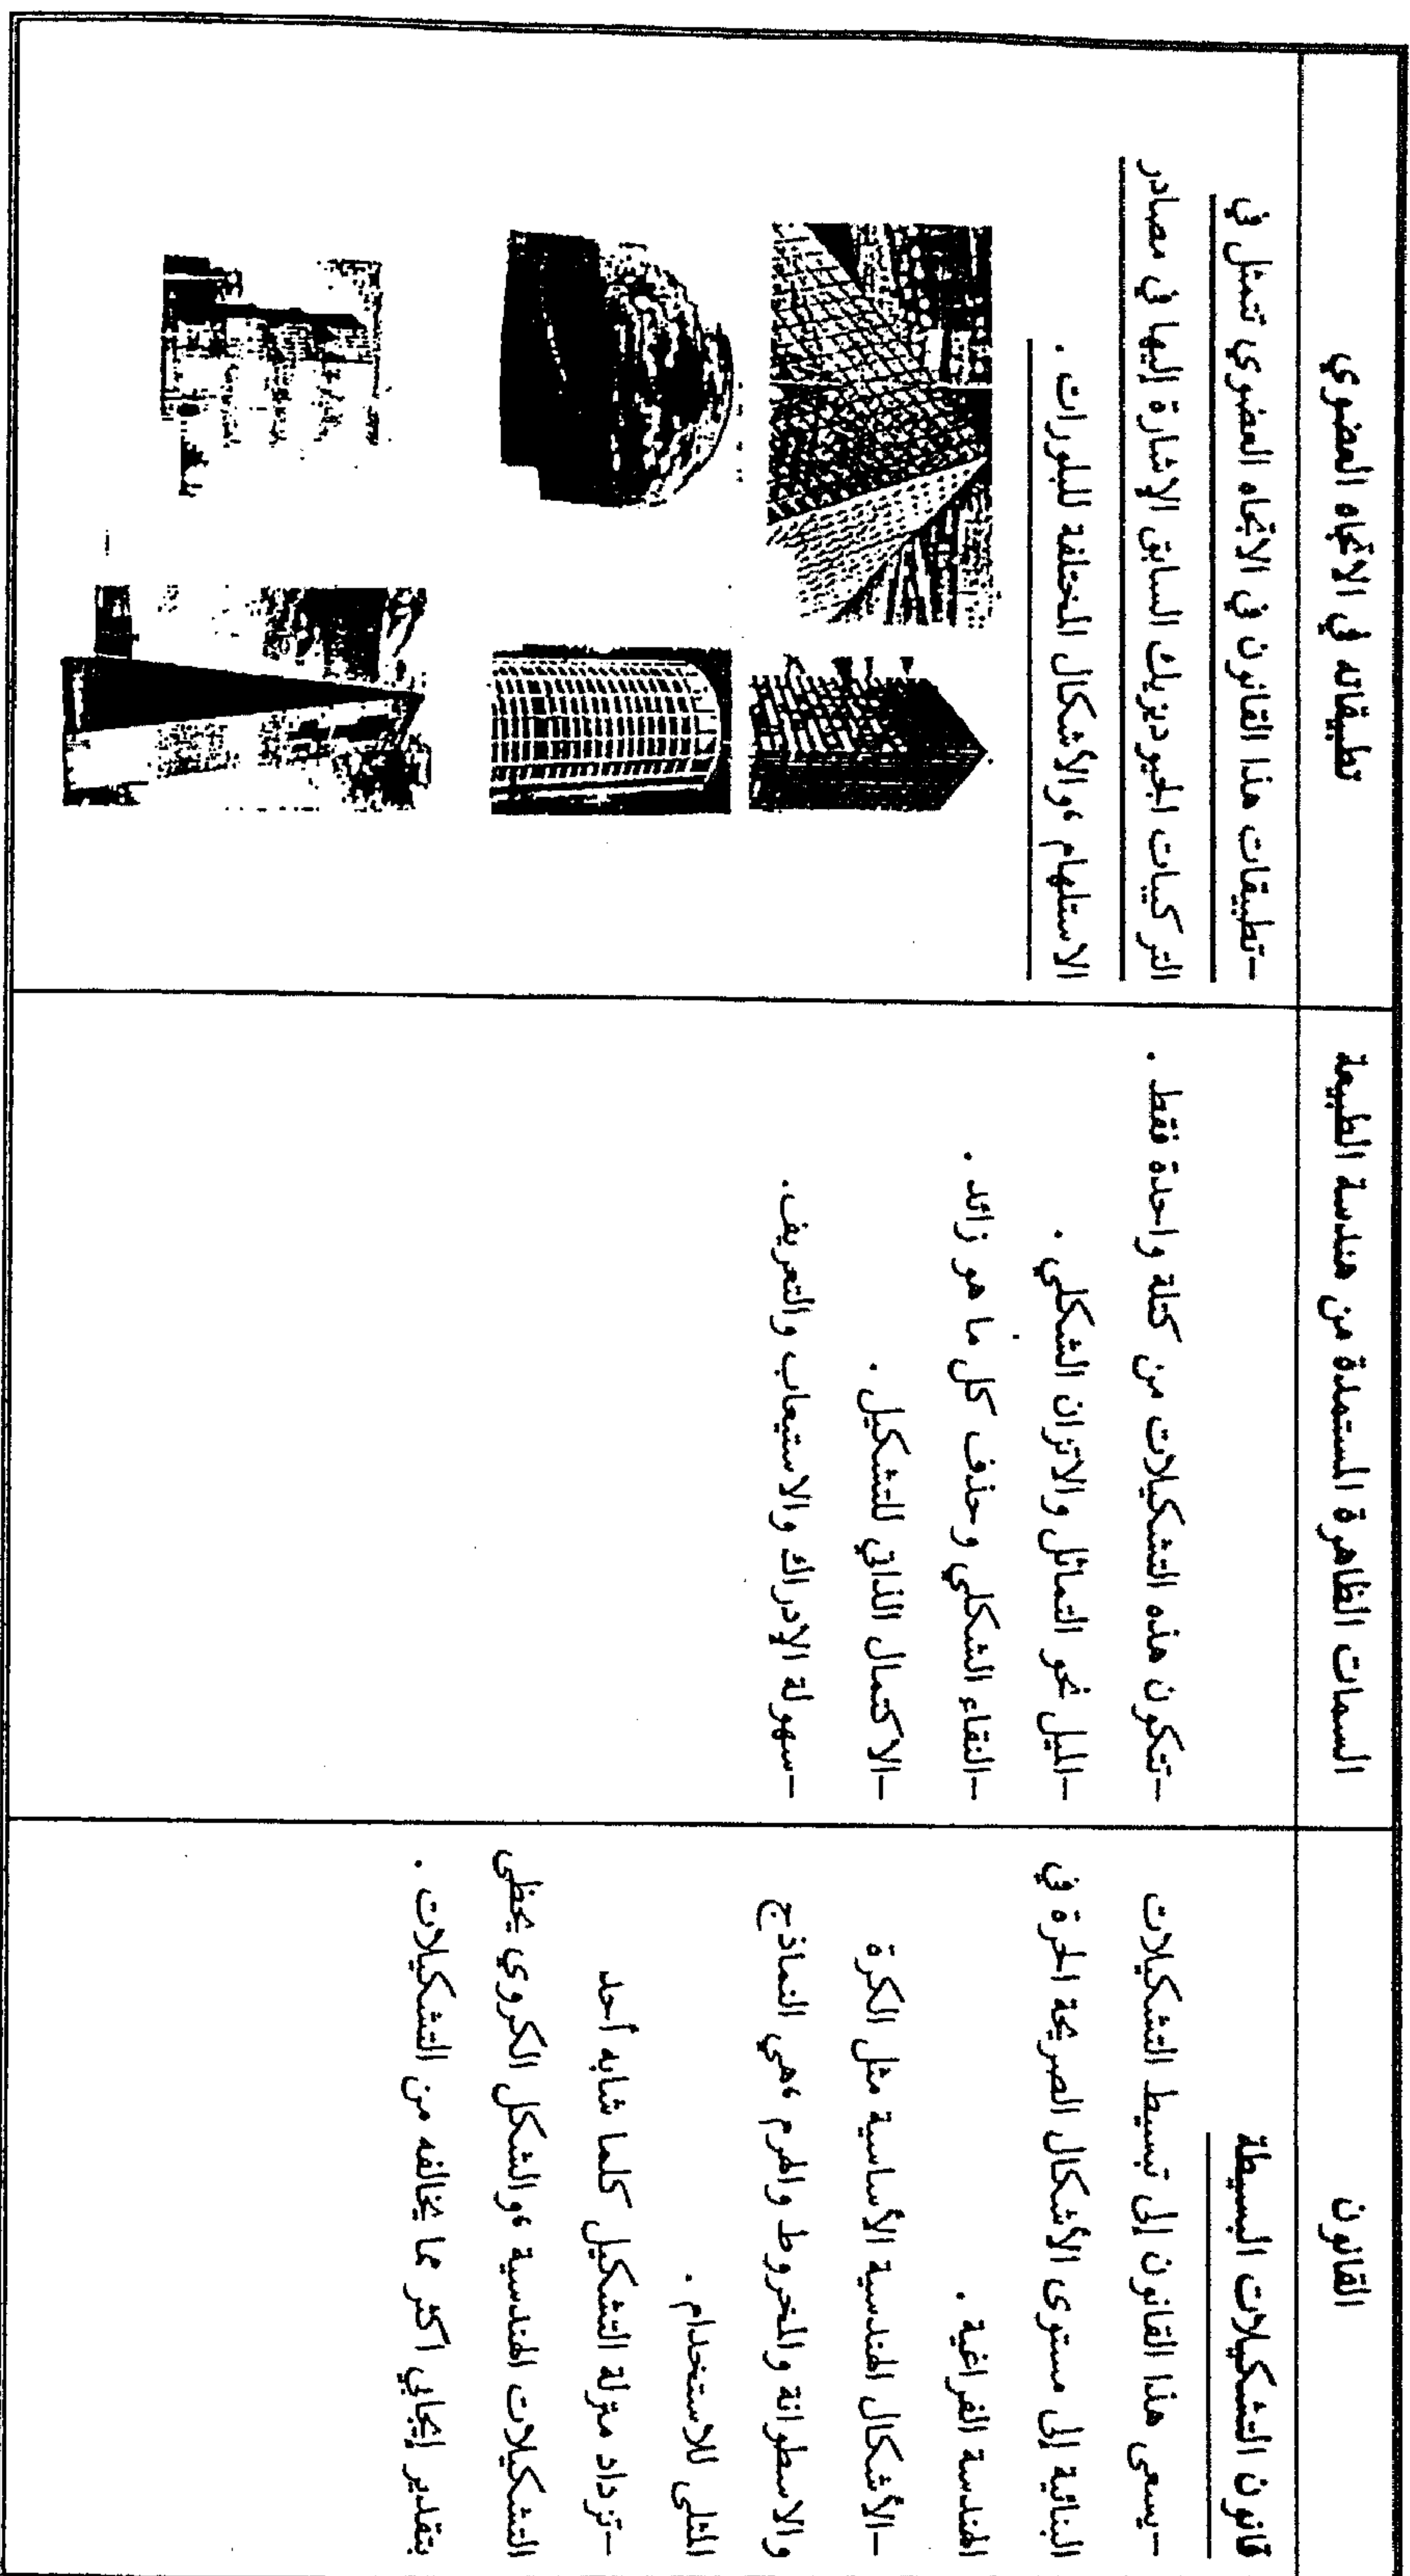 القانون
السمات الظاهرة المستمدة من هندسة الطبيعة
تطبيقاته في الاتجاه العضوي
قانون التشكيلات البسيطة
-يسعى هذا القانون إلى تبسيط التشكيلات
البنائية إلى مستوى الأشكال الصريحة الحرة في
الهندسة الفراغية .
-الأشكال الهندسية الأساسية مثل الكرة
والاسطوانة والمخروط والهرم ،هي النماذج
المثلى للاستخدام .
-تزداد منزلة التشكيل كلما شابه أحد
التشكيلات الهندسية ،والشكل الكروي يحظى
بتقدير إيجابي أكثر مما يخالفه من التشكيلات .
-تتكون هذه التشكيلات من كتلة واحدة فقط .
-الميل نحو التماثل والاتزان الشكلي .
-النقاء الشكلي وحذف كل ما هو زائد .
-الاكتمال الذاتي للتشكيل .
-سهولة الإدراك والاستيعاب والتعريف.
-تطبيقات هذا القانون في الاتجاه العضوي تتمثل في
التركيبات الجيوديزيك السابق الإشارة إليها في مصادر
الاستلهام ،والأشكال المختلفة للبلورات .